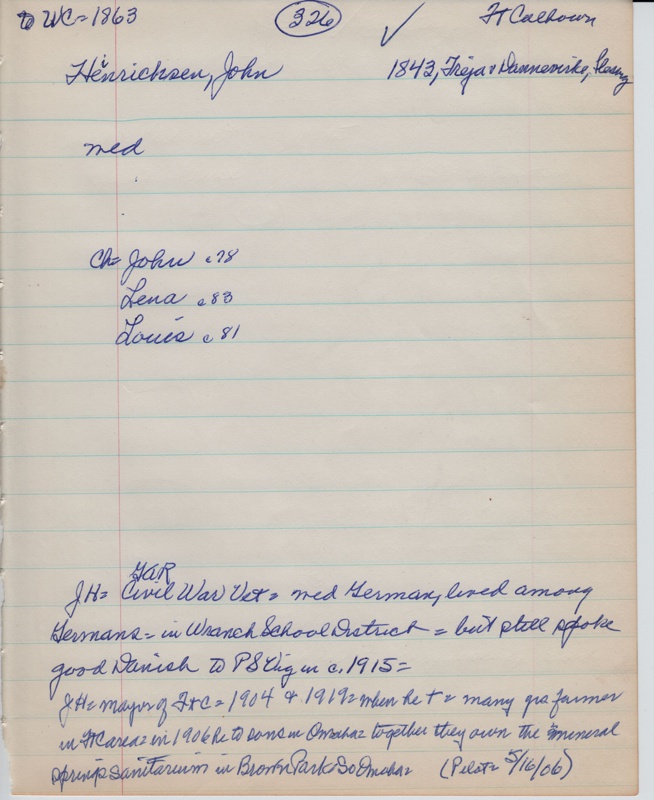 to WC= 1863 326 ✓ Ft Calhoun
Henricksen, John 1843, Treja & Dannevirke, Slesvig
med
Ch= John c78
Lena c83
Louis c81
GAR
JH= Civil War Vet= med German, lived among
Germans= in Wranch School District= but still spoke
good Danish to PS Vig in c. 1915=
JH= mayor of FtC= 1904 & 1919= when he †= many yrs farmer
in FtC area= in 1906 he to sons in Omaha= together they own the mineral
springs sanitarium in Brown Park So Omaha= (Pilot= 5/16/06)